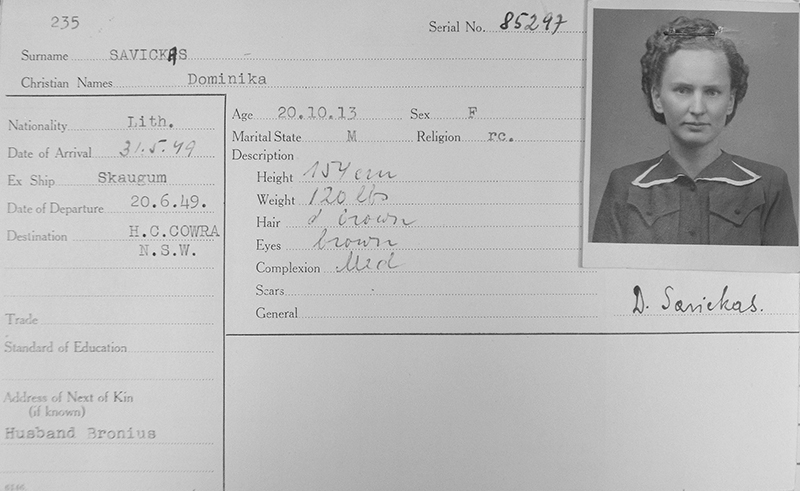 235
Serial No. 85297
Surname SAVICKAS
Christian Names Dominika
Nationality Lith.
Date of Arrival 31.5.49
Ex Ship Skaugum
Date of Departure 20.6.49.
Destination H.C.COWRA
N.S.W.
Trade
Standard of Education
Address of Next of Kin
(if known)
Husband Bronius
Age 20.10.13 Sex F
Marital State M Religion rc.
Description
Height 154 cm
Weight 120 lbs
Hair d brown
Eyes brown
Complexion Med
Scars
General
D. Savickas.